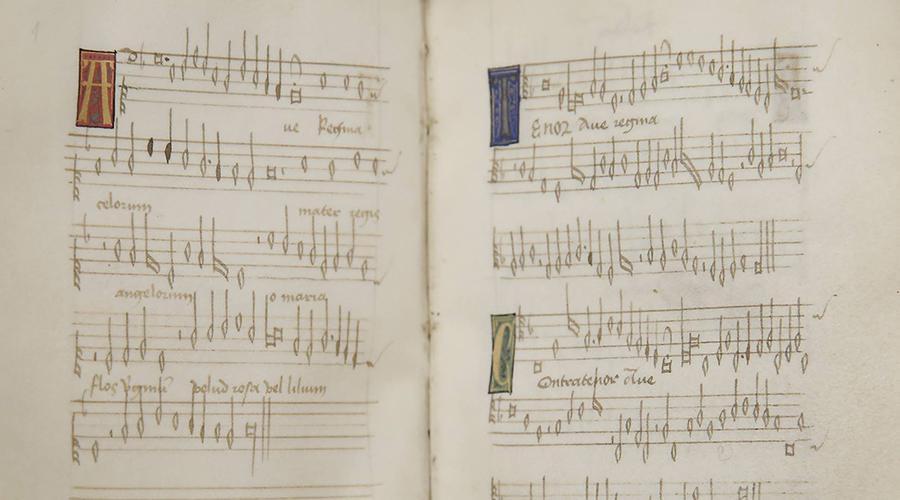 A
ue Regina
celorum mater regis
angelorum o maria
flos vginū velud rosa vel lilium
T
Enor Aue regina
C
Ontratenor Aue